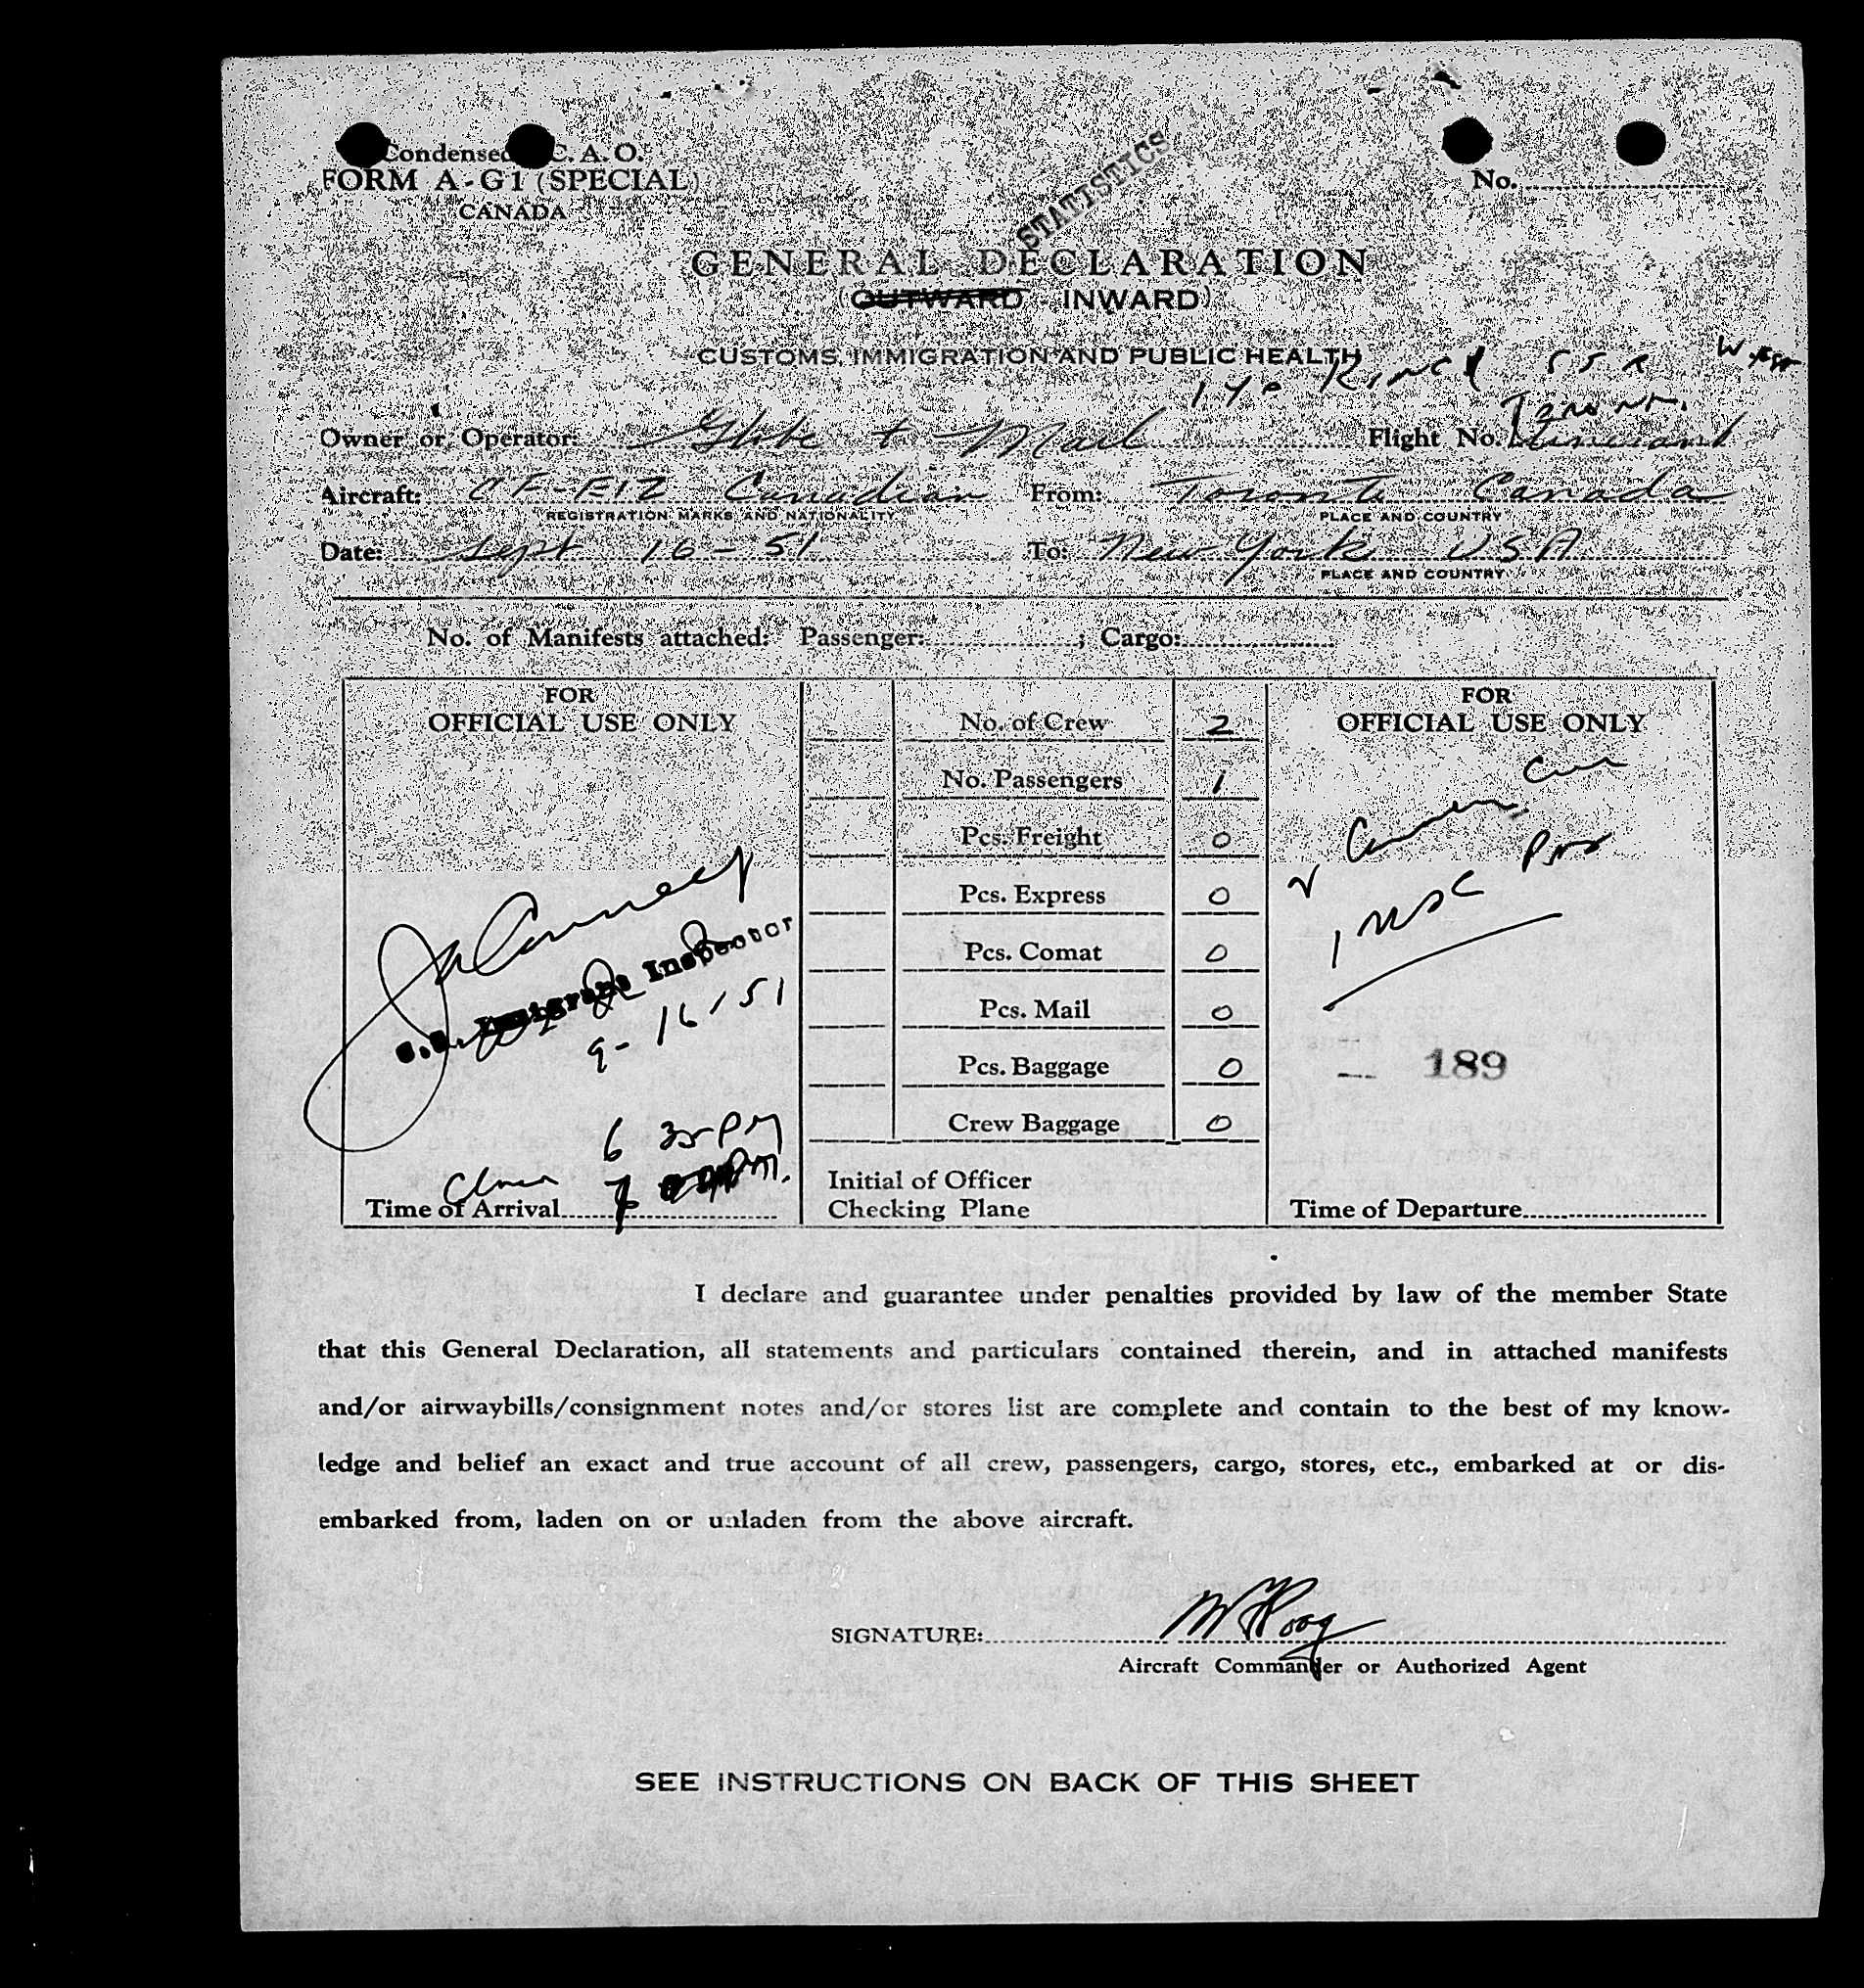 Condensed C. A. O.
FORM A-G1 (SPECIAL)
CANADA
No.
STATISTICS
GENERAL DECLARATION
(OUTWARD - INWARD)
CUSTOMS, IMMIGRATION AND PUBLIC HEALTH
140 W
Toront.
Owner or Operator: Globe + Mail Flight No.
Aircraft: CF-EIZ Canadian From: Toronto Canada
REGISTRATION MARKS AND NATIONALITY PLACE AND COUNTRY
Date: Sept 16 - 51 To: New York USA
PLACE AND COUNTRY
No. of Manifests attached: Passenger: ; Cargo:
FOR
OFFICIAL USE ONLY
Inspector
9-16/51
6 35 PM
7 PM.
Time of Arrival
No. of Crew 2
No. Passengers 1
Pcs. Freight 0
Pcs. Express 0
Pcs. Comat 0
Pcs. Mail 0
Pcs. Baggage 0
Crew Baggage 0
Initial of Officer
Checking Plane
FOR
OFFICIAL USE ONLY
1
189
Time of Departure
I declare and guarantee under penalties provided by law of the member State
that this General Declaration, all statements and particulars contained therein, and in attached manifests
and/or airwaybills/consignment notes and/or stores list are complete and contain to the best of my know-
ledge and belief an exact and true account of all crew, passengers, cargo, stores, etc., embarked at or dis-
embarked from, laden on or unladen from the above aircraft.
SIGNATURE:
Aircraft Commander or Authorized Agent
SEE INSTRUCTIONS ON BACK OF THIS SHEET